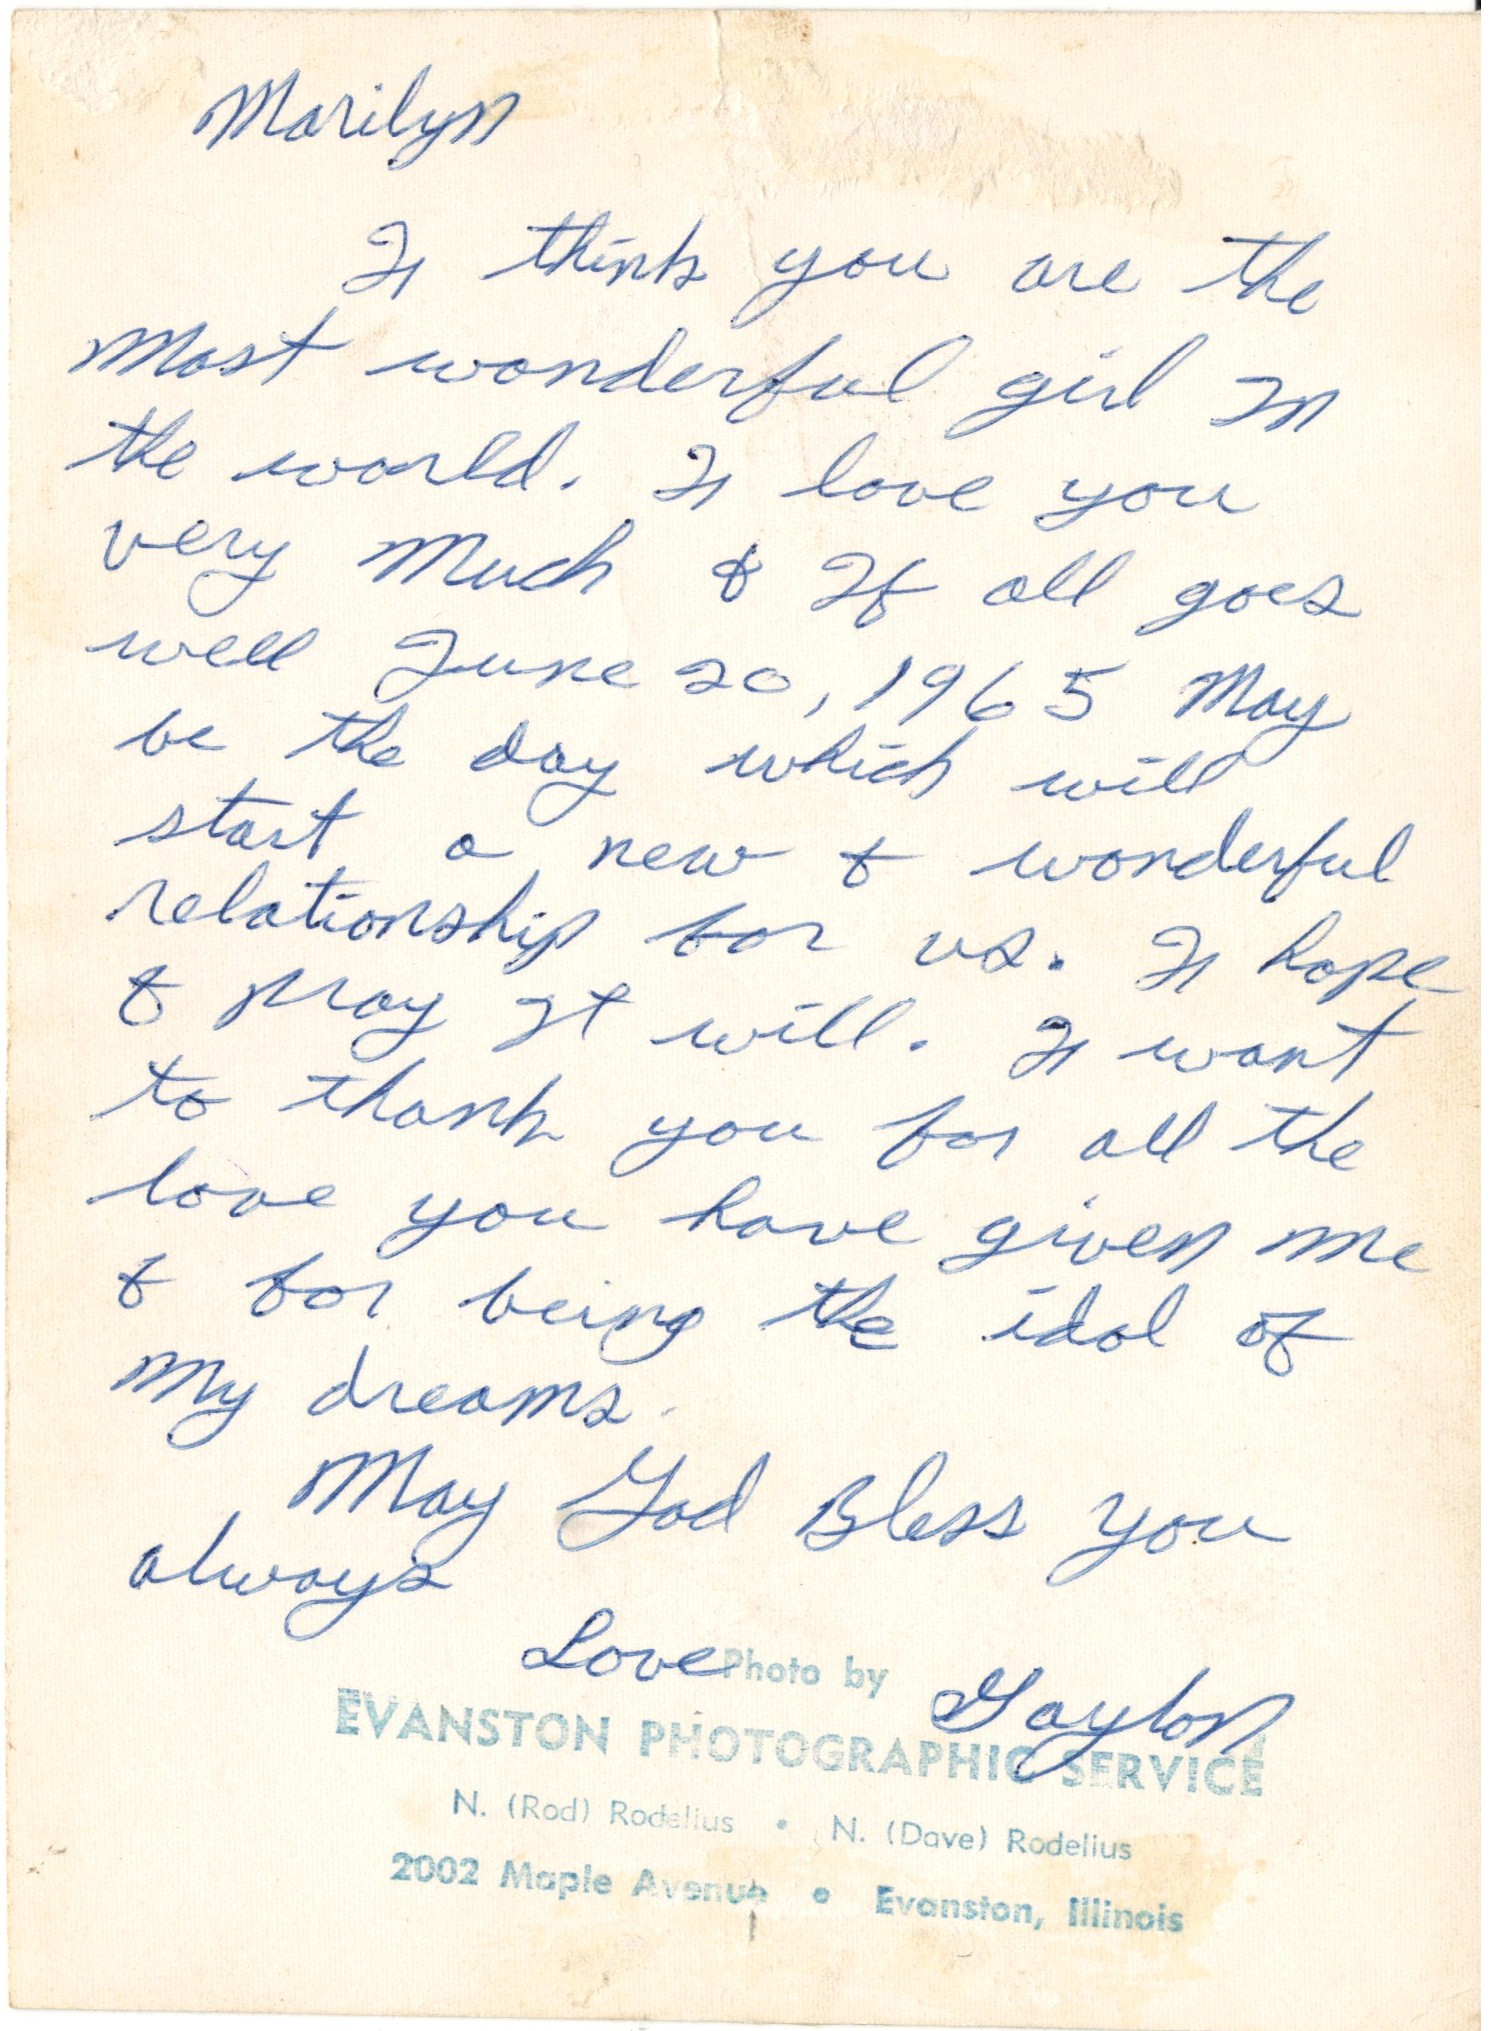 Marilyn
I think you are the
Most wonderful girl In
the world. I love you
very Much & If all goes
well June 20, 1965 May
be the day which will
start a new & wonderful
relationship for us. I hope
& pray It will. I want
to thank you for all the
love you have given me
& for being the idol of
My dreams.
May God Bless you
always
Love Gaylon
Photo by
EVANSTON PHOTOGRAPHIC SERVICE
N. (Rod) Rodelius • N. (Dave) Rodelius
2002 Maple Avenue • Evanston, Illinois